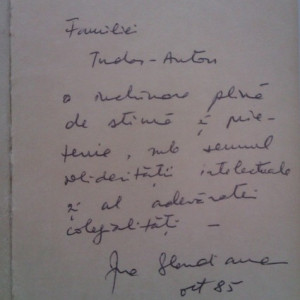 Familiei
Tudor-Anton
o închinare plină
de stimă și prie-
tenie, sub semnul
solidarității intelectuale
și al adevăratei
colegialități –
oct 85